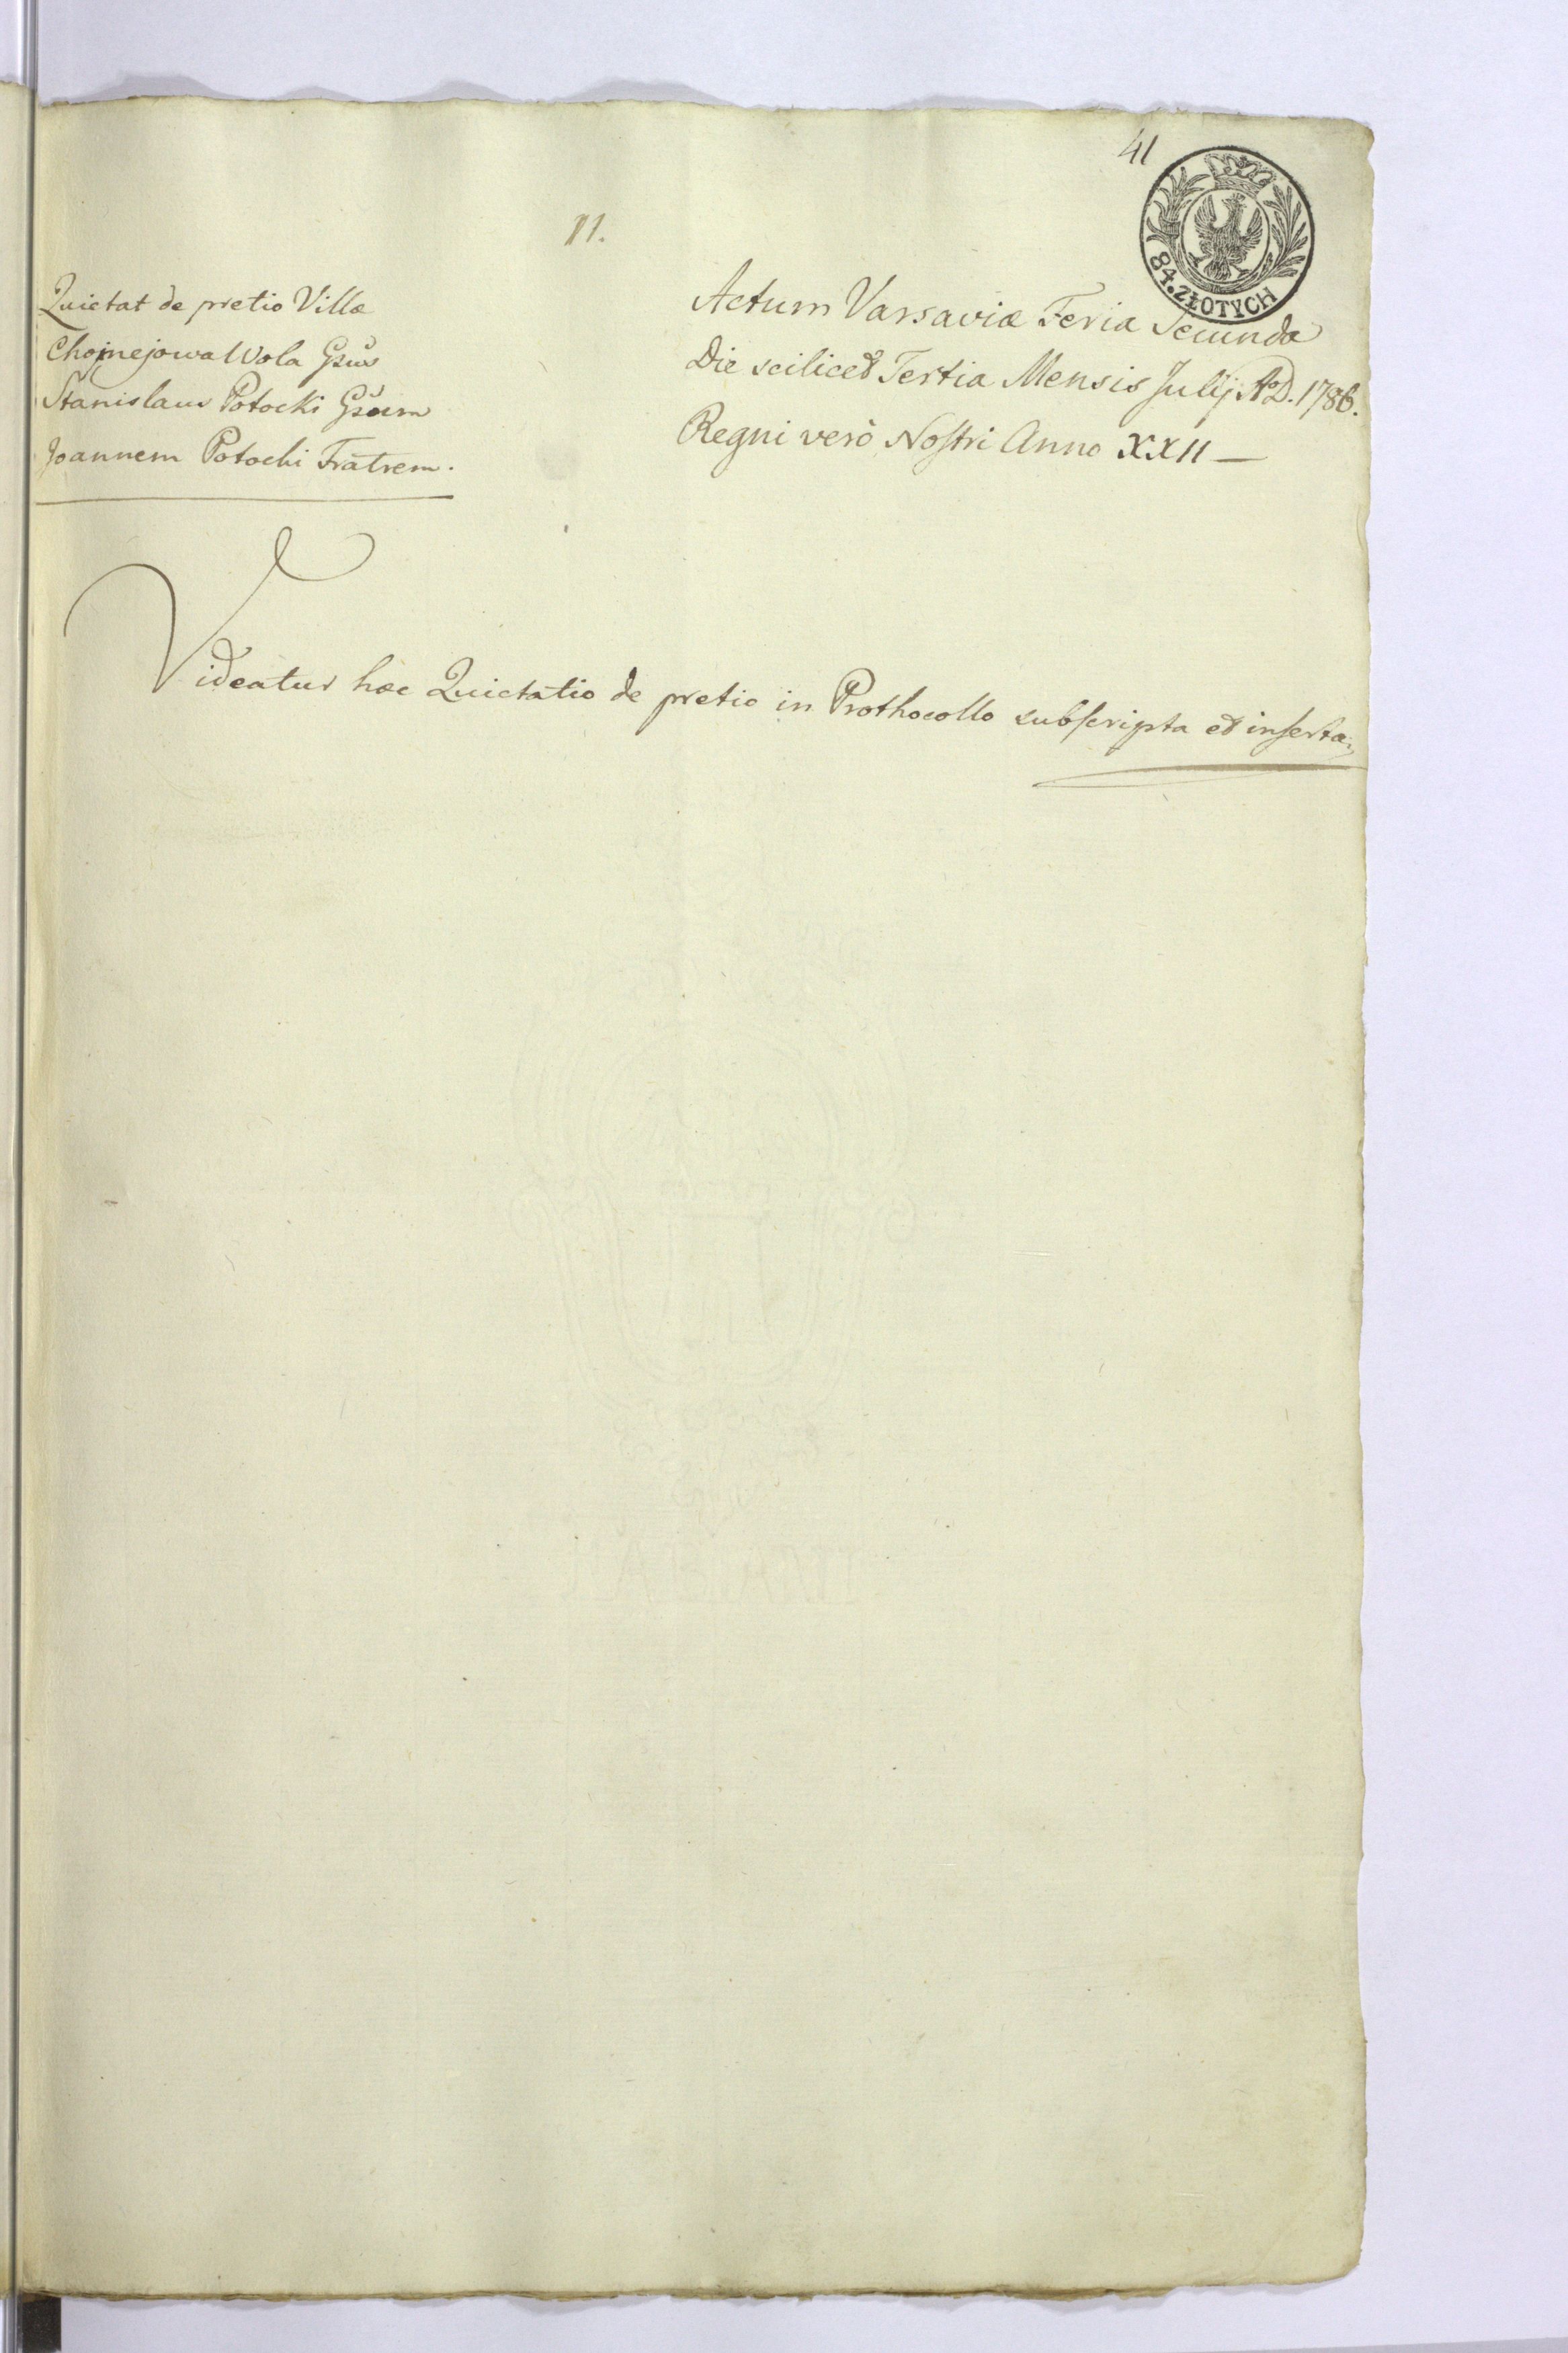 41
84. ZŁOTYCH
11.
Quietat de pretio Villæ
Chojnejowa Wola Gsus
Stanislaus Potocki Gsum
Joannem Potocki Fratrem.
Actum Varsaviæ Feria Secunda
Die scilicet Tertia Mensis Julij AD. 1786.
Regni verò Nostri Anno XXII —
Videatur hæc Quietatio de pretio in Prothocollo subscripta et inserta